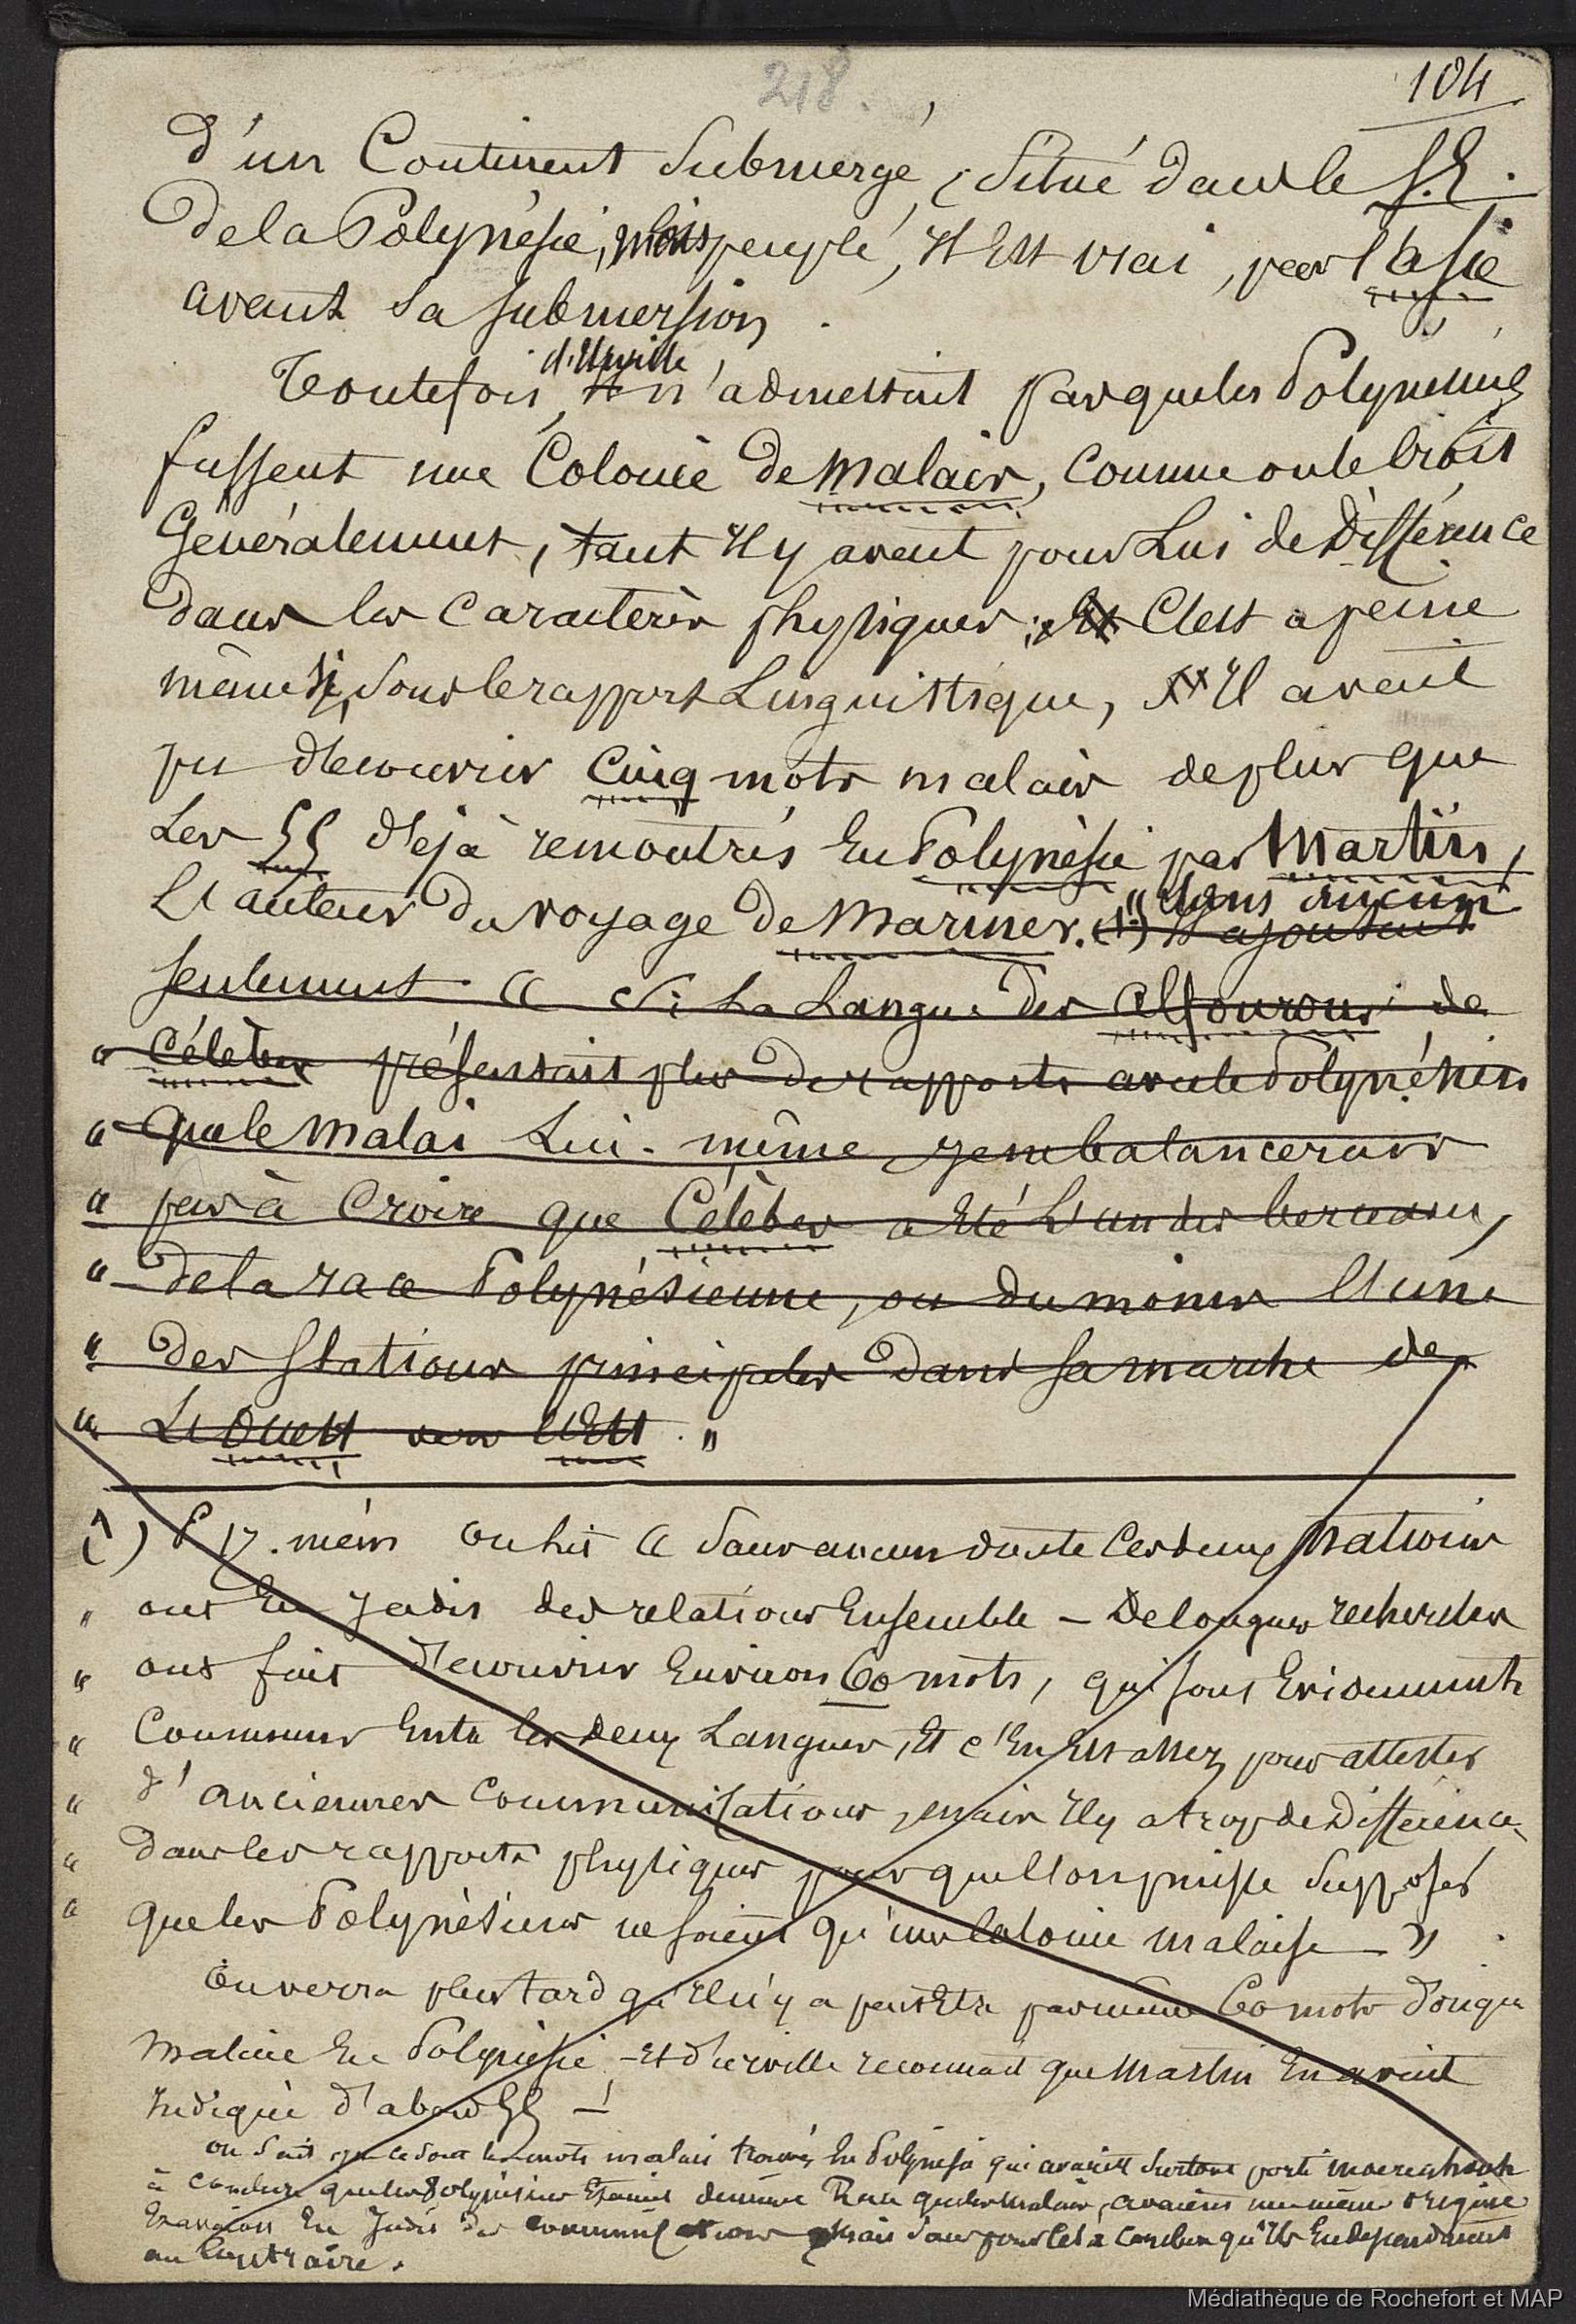 218.
104
d'un Continent Submergé, Situé dans le S.E.
de la Polynésie, mais peuplé, Il Est vrai, par l'asie
avant sa submersion.
Toutefois, d'Urville n'admettait pas que les Polynésiens
fussent une Colonie de Malais, comme on le croit
Généralement, tant Il y avait pour Lui de Différence
dans les Caractères physiques; C'est à peine
même si, sous le rapport Linguistique, Il avait
pu découvrir cinq mots malais de plus que
Les 55 déjà remontrés En Polynésie par Martin,
L'auteur du voyage de Mariner. (1) Il ajoutait
"dans aucun
seulement « Si La Langue des Alfourous de
« Célèbes présentait plus de rapports avec le Polynésien
« que le Malai Lui-même, je ne balancerais
« pas à Croire que Célèbes a Eté L'un des berceaux,
« de la race Polynésienne, ou du moins l'une
« des Stations principales dans sa marche de
« L'Ouest vers l'Est. »
(1) P 17. mém on lit « Sans aucun doute Ces deux Nations
« ont Eu Jadis des relations Ensemble – De longues recherches
« ont fait découvrir Environ 60 mots, qui sont Evidemment
« Communs Entre les deux Langues, Et c'En Est assez pour attester
« d'anciennes Communications, mais Il y a trop de Différence
« dans les rapports physiques pour que l'on puisse supposer
« que les Polynésiens ne soient qu'une Colonie malaise – »
On verra plus tard qu'Il n'y a peut Etre pas même 60 mots d'origine
Malaise En Polynésie – Et d'urville reconnait que Martin En avait
Indiqué d'abord 55 – !
on sait que ce sont les mots malais trouvés En Polynésie qui avaient surtout porté
à Conclure que les Polynésiens Etaient de même Race que les Malais, avaient une même origine
Eu Jadis des communications mais sans pour cela Conclure qu'Ils En dépendaient
au Contraire.
Médiathèque de Rochefort et MAP